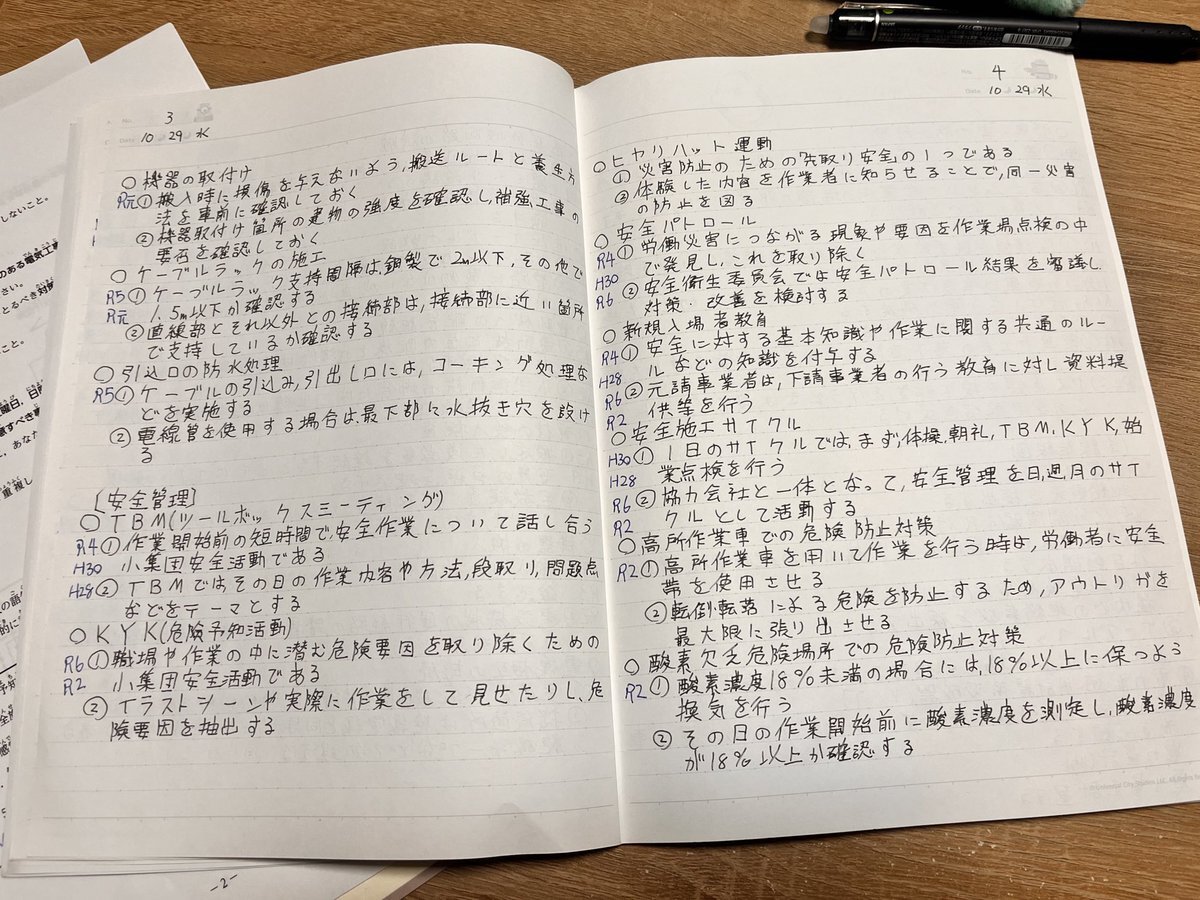 しないこと。
のある電気工
さい。
とるべき対策
こと。
曜日、日
意すべき事
、あなた
重複し
の語
的に
-2-
No. 3
Date 10 29 水
○機器の取付け
R元①搬入時に損傷を与えないよう,搬送ルートと養生方
法を事前に確認しておく
②機器取付け箇所の建物の強度を確認し,補強工事の
要否を確認しておく
○ケーブルラックの施工
R5①ケーブルラック支持間隔は,鋼製で2m以下,その他で
R元 1.5m以下か確認する
②直線部とそれ以外との接続部は,接続部に近い箇所
で支持しているか確認する
○引込口の防水処理
R5①ケーブルの引込み,引出し口には,コーキング処理な
どを実施する
②電線管を使用する場合は,最下部に水抜き穴を設け
る
[安全管理]
○TBM(ツールボックスミーティング)
R4①作業開始前の短時間で,安全作業について話し合う
H30 小集団安全活動である
H28②TBMではその日の作業内容や方法,段取り,問題点
などをテーマとする
○KYK(危険予知活動)
R6①職場や作業の中に潜む危険要因を取り除くための
R2 小集団安全活動である
②イラストシーンや実際に作業をして見せたりし、危
険要因を抽出する
No. 4
Date 10 29 水
○ヒヤリハット運動
①災害防止のための「先取り安全」の1つである
②体験した内容を作業者に知らせることで,同一災害
の防止を図る
○安全パトロール
R4①労働災害につながる現象や要因を作業場点検の中
H30 で発見し,これを取り除く
R6②安全衛生委員会では安全パトロール結果を審議し
対策・改善を検討する
○新規入場者教育
R4①安全に対する基本知識や作業に関する共通のルー
H28 ルなどの知識を付与する
R6②元請事業者は,下請事業者の行う教育に対し資料提
R2 供等を行う
○安全施工サイクル
H30①1日のサイクルでは,まず,体操,朝礼,TBM,KYK,始
H28 業点検を行う
R6②協力会社と一体となって,安全管理を日,週,月のサイ
R2 クルとして活動する
○高所作業車での危険防止対策
R2①高所作業車を用いて作業を行う時は,労働者に安全
帯を使用させる
②転倒・転落による危険を防止するため,アウトリガを
最大限に張り出させる
○酸素欠乏危険場所での危険防止対策
R2①酸素濃度18%未満の場合には,18%以上に保つよう
換気を行う
②その日の作業開始前に酸素濃度を測定し,酸素濃度
が18%以上か確認する